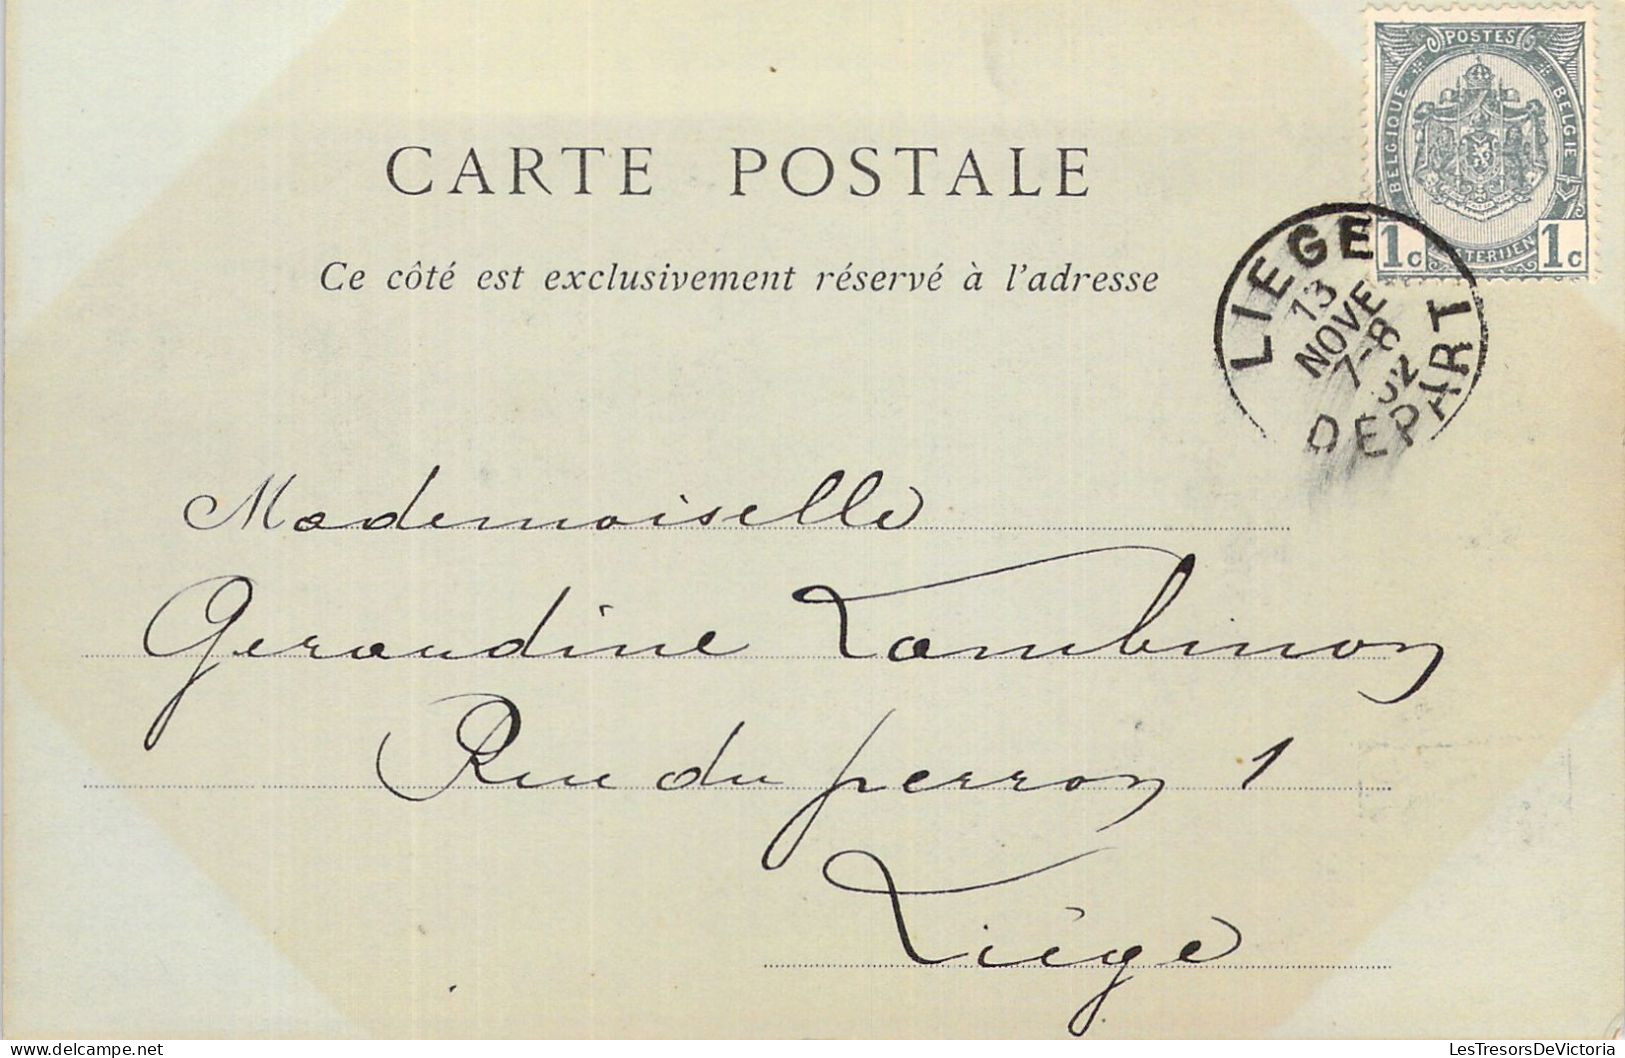 POSTES
BELGIQUE BELGIE
1c 1c
CARTE POSTALE
Ce côté est exclusivement réservé à l'adresse
LIEGE
13
NOVE
7-8
02
DEPART
Mademoiselle
Geraudine Lambinon
Rue du perron 1
Liége
delcampe.net
LesTresorsDeVictoria